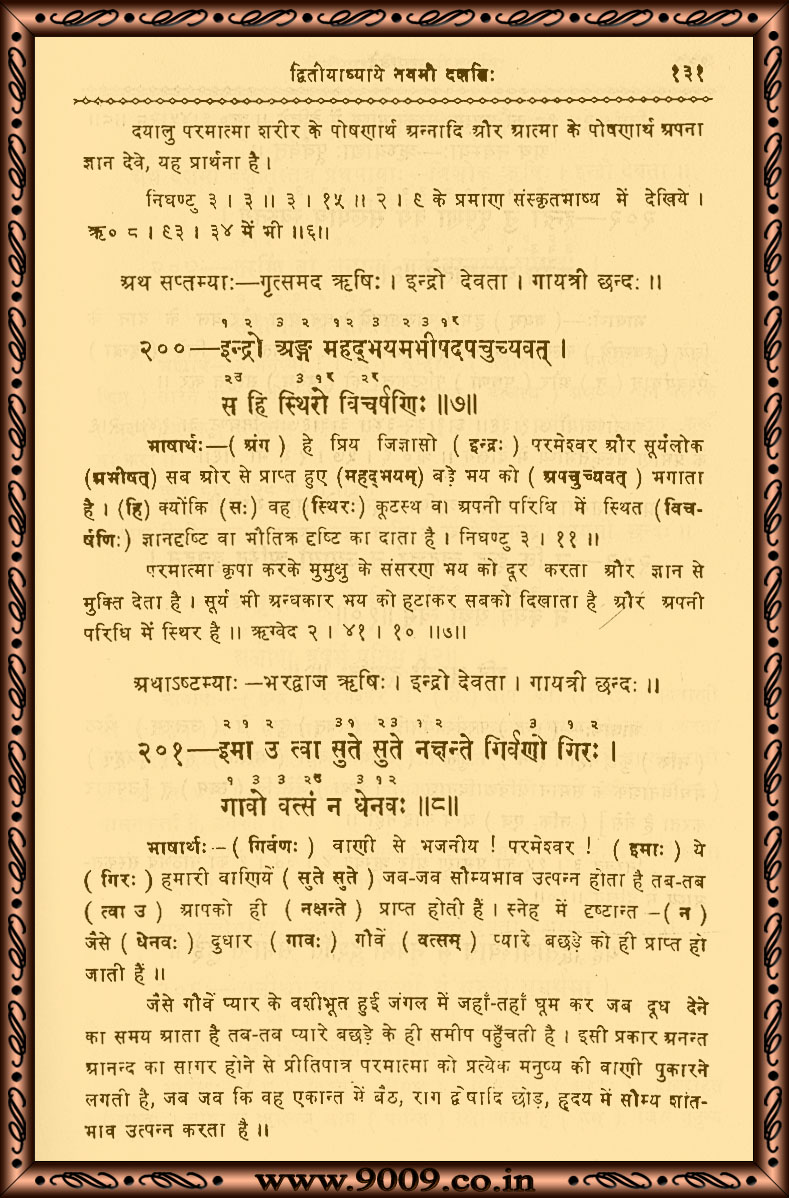 द्वितीयाध्याये नवमी दशतिः १३१
दयालु परमात्मा शरीर के पोषणार्थ अन्नादि और आत्मा के पोषणार्थ अपना
ज्ञान देवे, यह प्रार्थना है ।
निघण्टु ३ । ३ ॥ ३ । १५ ॥ २ । ९ के प्रमाण संस्कृतभाष्य में देखिये ।
ऋ० ८ । ९३ । ३४ में भी ॥६॥
अथ सप्तम्याः—गृत्समद ऋषिः । इन्द्रो देवता । गायत्री छन्दः ॥
१ २ ३ २ १२ ३ २ ३ १र
२००—इन्द्रो अङ्ग महद्भयमभीषदपचुच्यवत् ।
२उ ३ १र २र
स हि स्थिरो विचर्षणिः ॥७॥
भाषार्थः—( अंग ) हे प्रिय जिज्ञासो ( इन्द्रः ) परमेश्वर और सूर्यलोक
(अभीषत्) सब ओर से प्राप्त हुए (महद्भयम्) बड़े भय को ( अपचुच्यवत् ) भगाता
है । (हि) क्योंकि (सः) वह (स्थिरः) कूटस्थ वा अपनी परिधि में स्थित (विच-
र्षणिः) ज्ञानदृष्टि वा भौतिक दृष्टि का दाता है । निघण्टु ३ । ११ ॥
परमात्मा कृपा करके मुमुक्षु के संसरण भय को दूर करता और ज्ञान से
मुक्ति देता है । सूर्य भी अन्धकार भय को हटाकर सबको दिखाता है और अपनी
परिधि में स्थिर है ॥ ऋग्वेद २ । ४१ । १० ॥७॥
अथाऽष्टम्याः —भरद्वाज ऋषिः । इन्द्रो देवता । गायत्री छन्दः ॥
२ १ २ ३१ २३ १ २ ३ १ २
२०१—इमा उ त्वा सुते सुते नक्षन्ते गिर्वणो गिरः ।
१ ३ ३ २उ ३ १२
गावो वत्सं न धेनवः ॥८॥
भाषार्थः—( गिर्वणः ) वाणी से भजनीय ! परमेश्वर ! ( इमाः ) ये
( गिरः ) हमारी वाणियें ( सुते सुते ) जब-जब सौम्यभाव उत्पन्न होता है तब-तब
( त्वा उ ) आपको ही ( नक्षन्ते ) प्राप्त होती हैं । स्नेह में दृष्टान्त –( न )
जैसे ( धेनवः ) दुधार ( गावः ) गौवें ( वत्सम् ) प्यारे बछड़े को ही प्राप्त हो
जाती हैं ॥
जैसे गौवें प्यार के वशीभूत हुई जंगल में जहाँ-तहाँ घूम कर जब दूध देने
का समय आता है तब-तब प्यारे बछड़े के ही समीप पहुँचती है । इसी प्रकार अनन्त
आनन्द का सागर होने से प्रीतिपात्र परमात्मा को प्रत्येक मनुष्य की वाणी पुकारने
लगती है, जब जब कि वह एकान्त में बैठ, राग द्वेषादि छोड़, हृदय में सौम्य शांत-
भाव उत्पन्न करता है ॥
www.9009.co.in